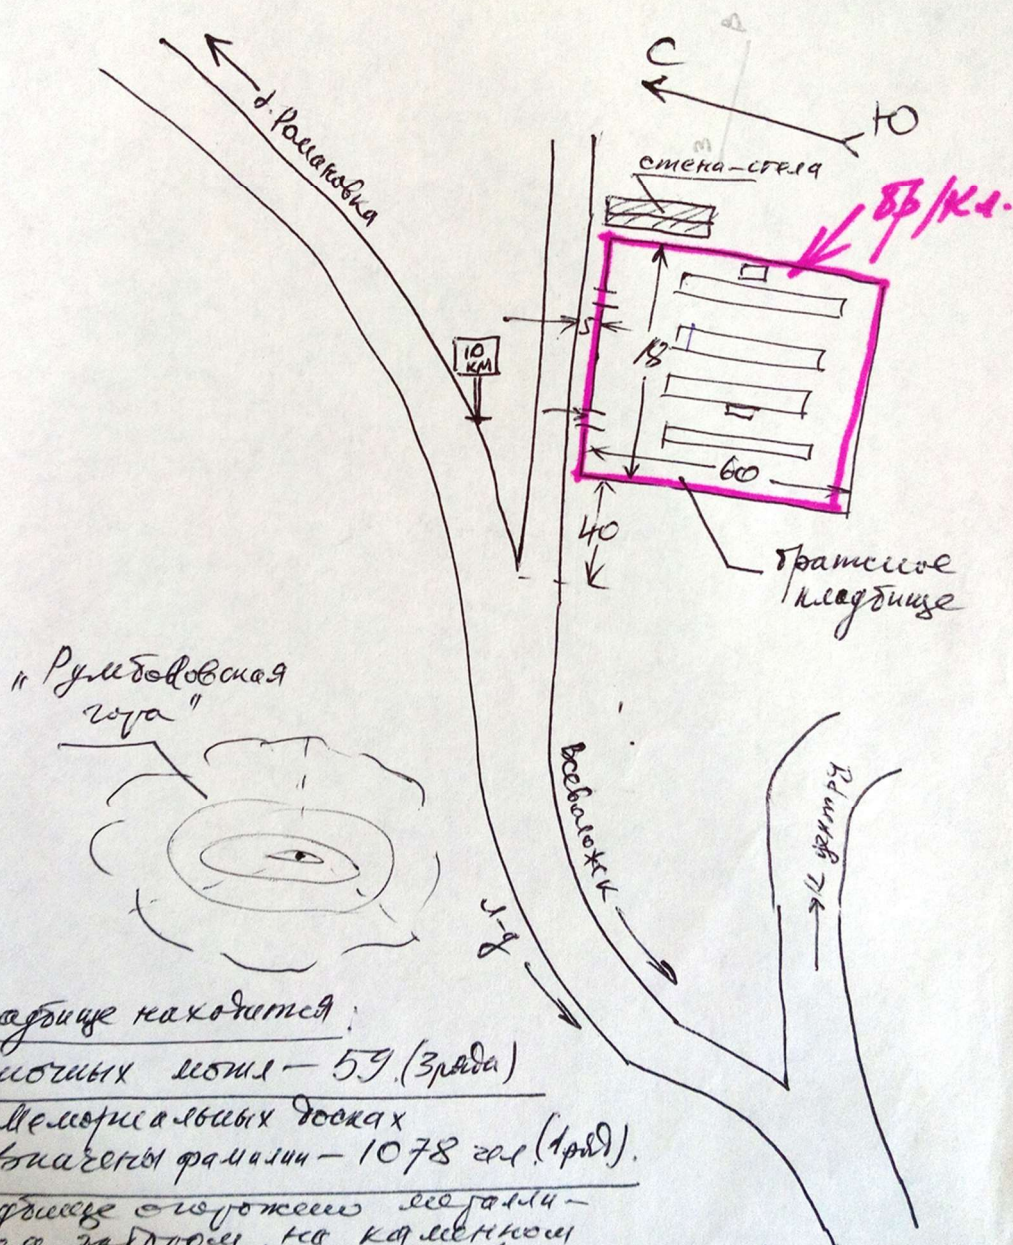 С
Ю
д. Романовка
стена-стела
бр/кл.
10
КМ
5
18
60
40
братское
кладбище
"Румболовская
гора"
Всеволожск
к центру
Л-д
адбище находится:
ночных могил - 59 (3 ряда)
Мемориальных досках
значены фамилии - 1078 чел. (1 ряд).
дбище огорожено металли-
на каменном